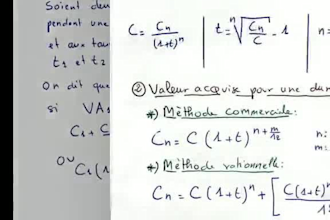 Soient deu
pendant une
et aux tau
t₁ et t₂
On dit que
si VA₁
C₁ + C
ou C₁(1
C = Cn/(1+t)^n | t = ⁿ√(Cn/C) - 1 | n =
② Valeur acquise pour une dur
*) Méthode commerciale:
Cn = C (1+t)^(n+m/12) n:
m:
*) Méthode rationnelle:
Cn = C (1+t)^n + [ C(1+t)^n